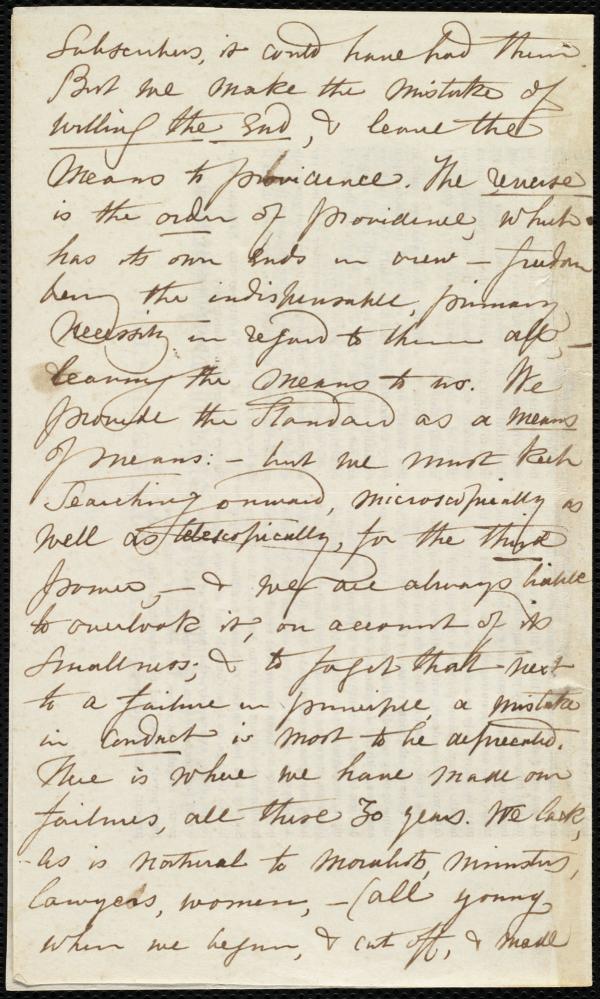 Subscribers, it could have had them.
But we make the mistake of
willing the End, & leave the
Means to providence. The reverse
is the order of Providence, which
has its own Ends in view – freedom
being the indispensable, primary
necessity in regard to them all, –
leaving the means to us. We
provide the Standard as a means
of means: – but we must keep
searching onward, microscopically as
well as telescopically, for the third
power, – & we are always liable
to overlook it, on account of its
smallness; & to forget that next
to a failure in principle, a mistake
in conduct is most to be deprecated.
There is where we have made our
failures, all these 30 years. We lack,
as is natural to moralists, ministers,
lawyers, women, – (all young
when we began, & cut off, & made